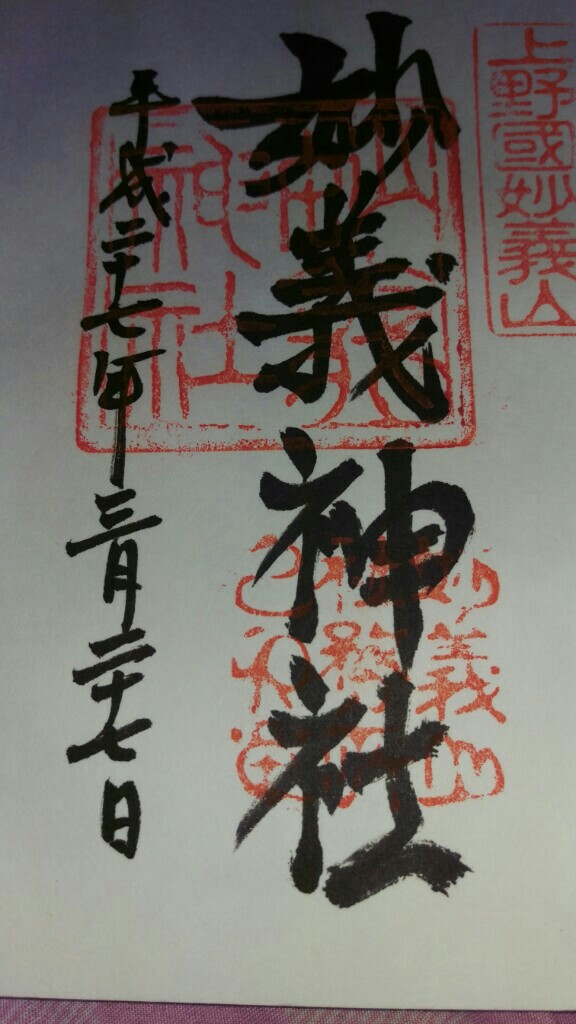 上野國妙義山
妙義神社
平成二十七年三月二十七日
妙義神社
妙義山